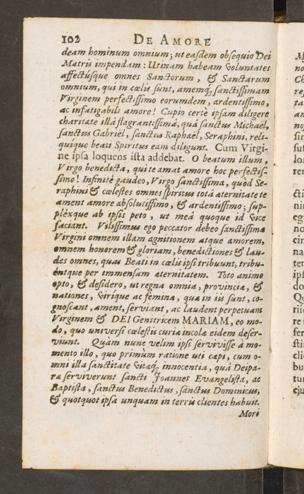 102 DE AMORE
deam hominum omnium; ut easdem obsequio Dei
Matris impendam: Utinam habeam voluntates
affectúsque omnes Sanctorum, & Sanctarum
omnium, qui in cœlis sunt, amemq́; sanctissimam
Virginem perfectissimo eorumdem, ardentissimo,
ac infatigabili amore! Cupio certè ipsam diligere
charitate illâ flagrantissimâ, quâ sanctus Michaël,
sanctus Gabriel, sanctus Raphaël, Seraphini, reli-
quique beati Spiritus eam diligunt. Cum Virgi-
ne ipsa loquens ista addebat. O beatum illum,
Virgo benedicta, qui te amat amore hoc perfectis-
simo! Infinitè gaudeo, Virgo sanctissima, quòd Se-
raphini & cœlestes omnes spiritus totâ æternitate te
ament amore absolutissimo, & ardentissimo; sup-
pléxque ab ipsis peto, ut meâ quoque id vice
faciant. Vilissimus ego peccator debeo sanctissimæ
Virgini omnem illam agnitionem atque amorem,
omnem honorem & gloriam, benedictiones & lau-
des omnes, quas Beati in cœlis ipsi tribunt, tribu-
éntque per immensam æternitatem. Toto animo
opto, & desidero, ut regna omnia, provincia, &
nationes, virique ac femina, qua in iis sunt, co-
gnoscant, ament, servant, ac laudent perpetuam
Virginem & DEI Genitricem MARIAM, eo mo-
do, quo universi cœlestis curia incola eidem deser-
viunt. Quàm nunc velim ipsi servivisse à mo-
mento illo, quo primùm ratione uti cæpi, cum o-
mni illa sanctitate vitæq́; innocentia, quâ Deipa-
ra serviverunt sancti Joannes Evangelista, ac
Baptista, sanctus Benedictus, sanctus Dominicus,
& quotquot ipsa unquam in terris clientes habuit.
Mori